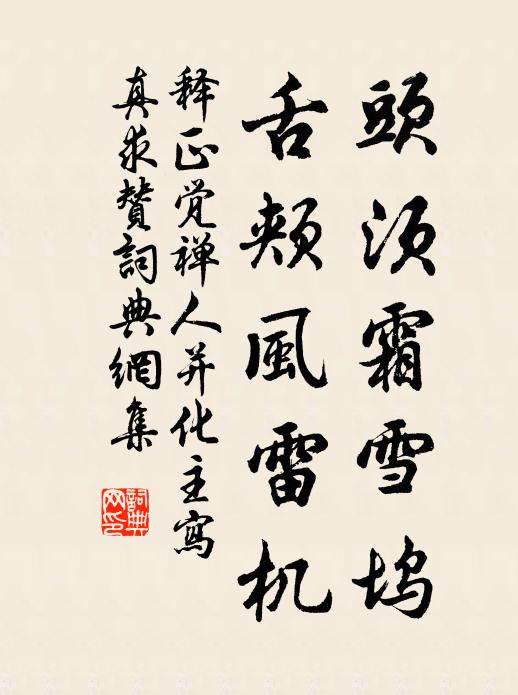 頭须霜雪坞
舌颊風雷机
释正觉禅人并化主寫
真求赞詞典網集
詞典网印